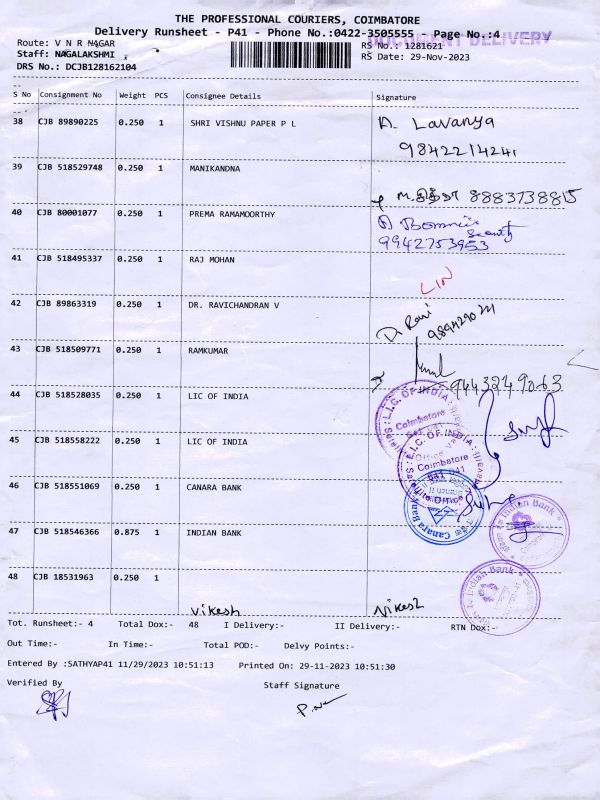 THE PROFESSIONAL COURIERS, COIMBATORE
Delivery Runsheet - P41 - Phone No.:0422-3505555 - Page No.:4
DOCUMENT DELIVERY
Route: V N R NAGAR
RS No.: 1281621
Staff: NAGALAKSHMI
RS Date: 29-Nov-2023
DRS No.: DCJB128162104
S No Consignment No Weight PCS Consignee Details Signature
38 CJB 89890225 0.250 1 SHRI VISHNU PAPER P L A. Lavanya
9842214241
39 CJB 518529748 0.250 1 MANIKANDNA
8883738815
40 CJB 80001077 0.250 1 PREMA RAMAMOORTHY
9942753953
41 CJB 518495337 0.250 1 RAJ MOHAN
LIN
42 CJB 89863319 0.250 1 DR. RAVICHANDRAN V
D. Ravi
43 CJB 518509771 0.250 1 RAMKUMAR
9443249063
44 CJB 518528035 0.250 1 LIC OF INDIA
L.I.C. OF INDIA
Coimbatore
45 CJB 518558222 0.250 1 LIC OF INDIA
L.I.C. OF INDIA
Coimbatore
641 041
46 CJB 518551069 0.250 1 CANARA BANK
Canara Bank
47 CJB 518546366 0.875 1 INDIAN BANK
Indian Bank
48 CJB 18531963 0.250 1
Indian Bank
Vikesh
Tot. Runsheet:- 4 Total Dox:- 48 I Delivery:- II Delivery:- RTN Dox:-
Out Time:- In Time:- Total POD:- Delvy Points:-
Entered By :SATHYAP41 11/29/2023 10:51:13 Printed On: 29-11-2023 10:51:30
Verified By Staff Signature